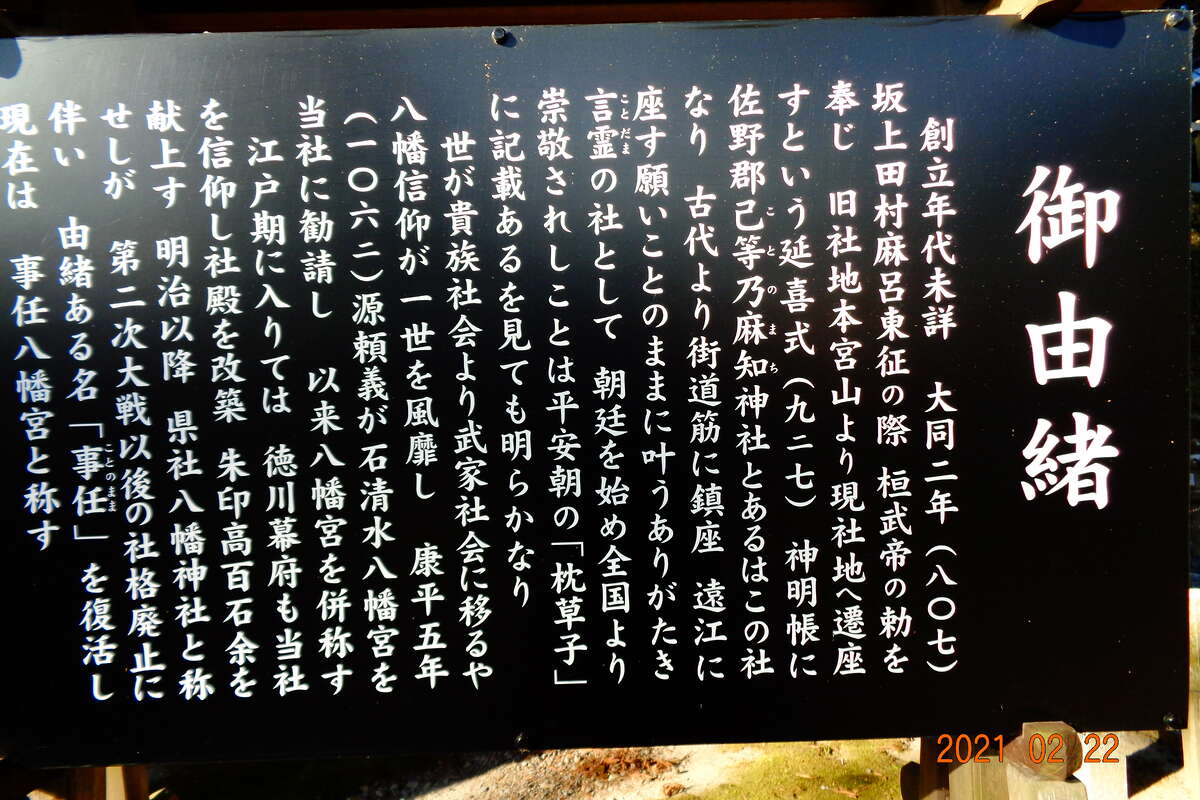 御由緒
創立年代未詳 大同二年(八〇七)
坂上田村麻呂東征の際 桓武帝の勅を
奉じ 旧社地本宮山より現社地へ遷座
すという延喜式(九二七) 神明帳に
佐野郡己等乃麻知神社とあるはこの社
ことのまち
なり 古代より街道筋に鎮座 遠江に
座す願いことのままに叶うありがたき
言霊の社として 朝廷を始め全国より
ことだま
崇敬されしことは平安朝の「枕草子」
に記載あるを見ても明らかなり
世が貴族社会より武家社会に移るや
八幡信仰が一世を風靡し 康平五年
(一〇六二)源頼義が石清水八幡宮を
当社に勧請し 以来八幡宮を併称す
江戸期に入りては 徳川幕府も当社
を信仰し社殿を改築 朱印高百石余を
献上す 明治以降 県社八幡神社と称
せしが 第二次大戦以後の社格廃止に
伴い 由緒ある名「事任」を復活し
ことのまま
現在は 事任八幡宮と称す
2021 02 22